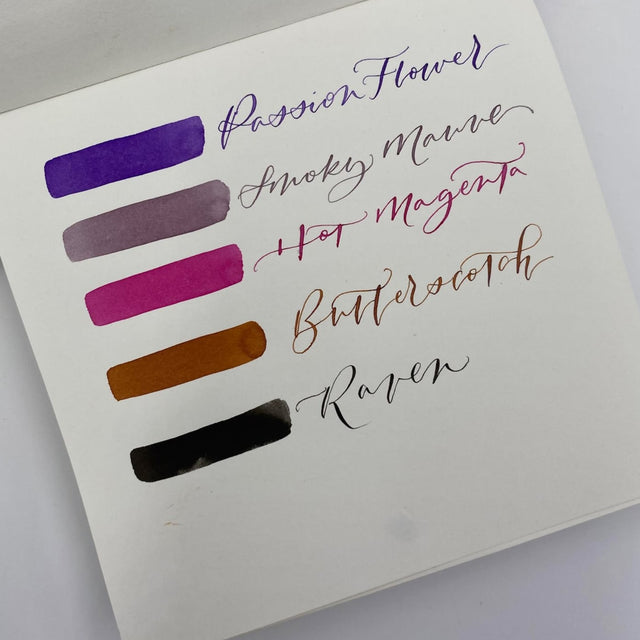 Passion Flower
Smoky Mauve
Hot Magenta
Butterscotch
Raven